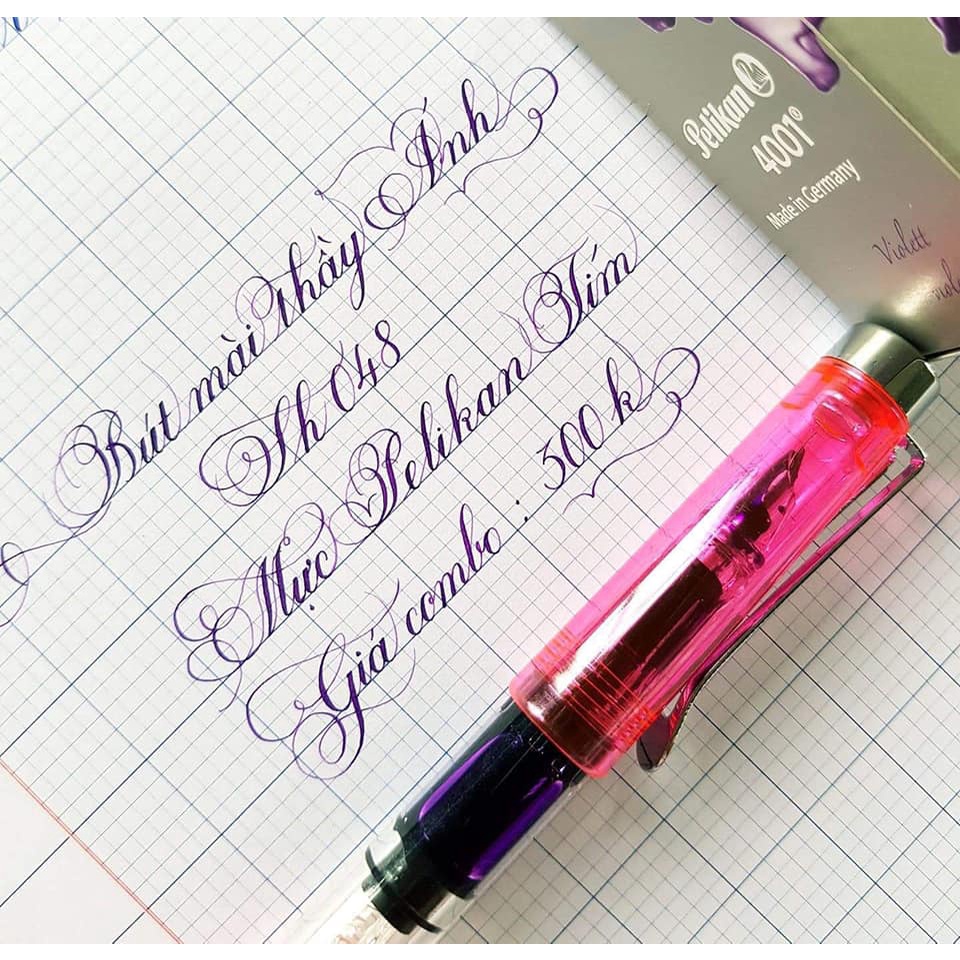 Bút mài thầy Ánh
Sh 048
Mực Pelikan Tím
Giá combo : 300 k
Pelikan
4001®
Made in Germany
Violett